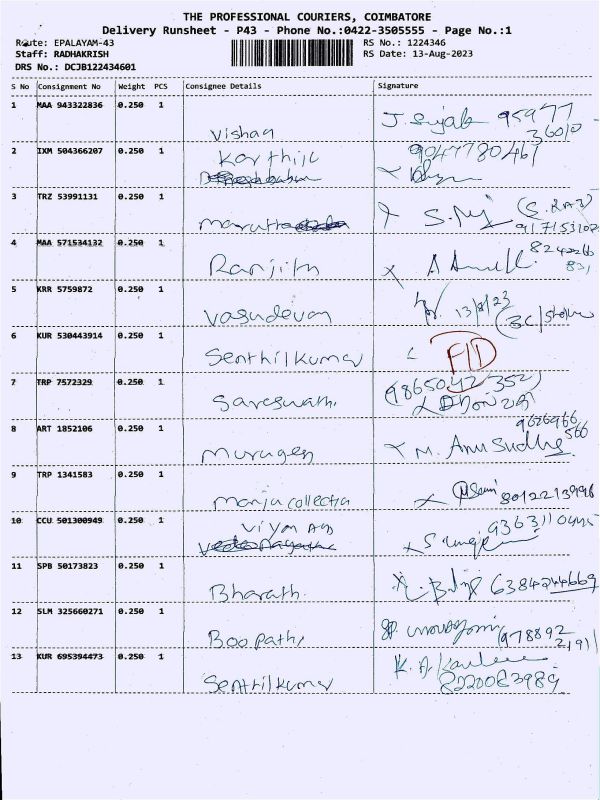 THE PROFESSIONAL COURIERS, COIMBATORE
Delivery Runsheet - P43 - Phone No.:0422-3505555 - Page No.:1
Route: EPALAYAM-43 RS No.: 1224346
Staff: RADHAKRISH RS Date: 13-Aug-2023
DRS No.: DCJB122434601
S No Consignment No Weight PCS Consignee Details Signature
1 MAA 943322836 0.250 1
Vishag J. Sujab 95977
36010
2 IXM 504366207 0.250 1 Karthik 9047780467
3 TRZ 53991131 0.250 1
Marutha (S. RAJ)
4 MAA 571534132 0.250 1
Ranjith
5 KRR 5759872 0.250 1
Vasudevan 13/8/23
6 KUR 530443914 0.250 1
Senthilkumar F/D
7 TRP 7572329 0.250 1
Sareswathi (9865042352)
8 ART 1852106 0.250 1 9626966
566
Murugen M. Anusudhe
9 TRP 1341583 0.250 1
Manja collectia
10 CCU 501300949 0.250 1
11 SPB 50173823 0.250 1
Bharath 6384244669
12 SLM 325660271 0.250 1
Boopathi 978892
2191
13 KUR 695394473 0.250 1
Senthilkumar 8220083989